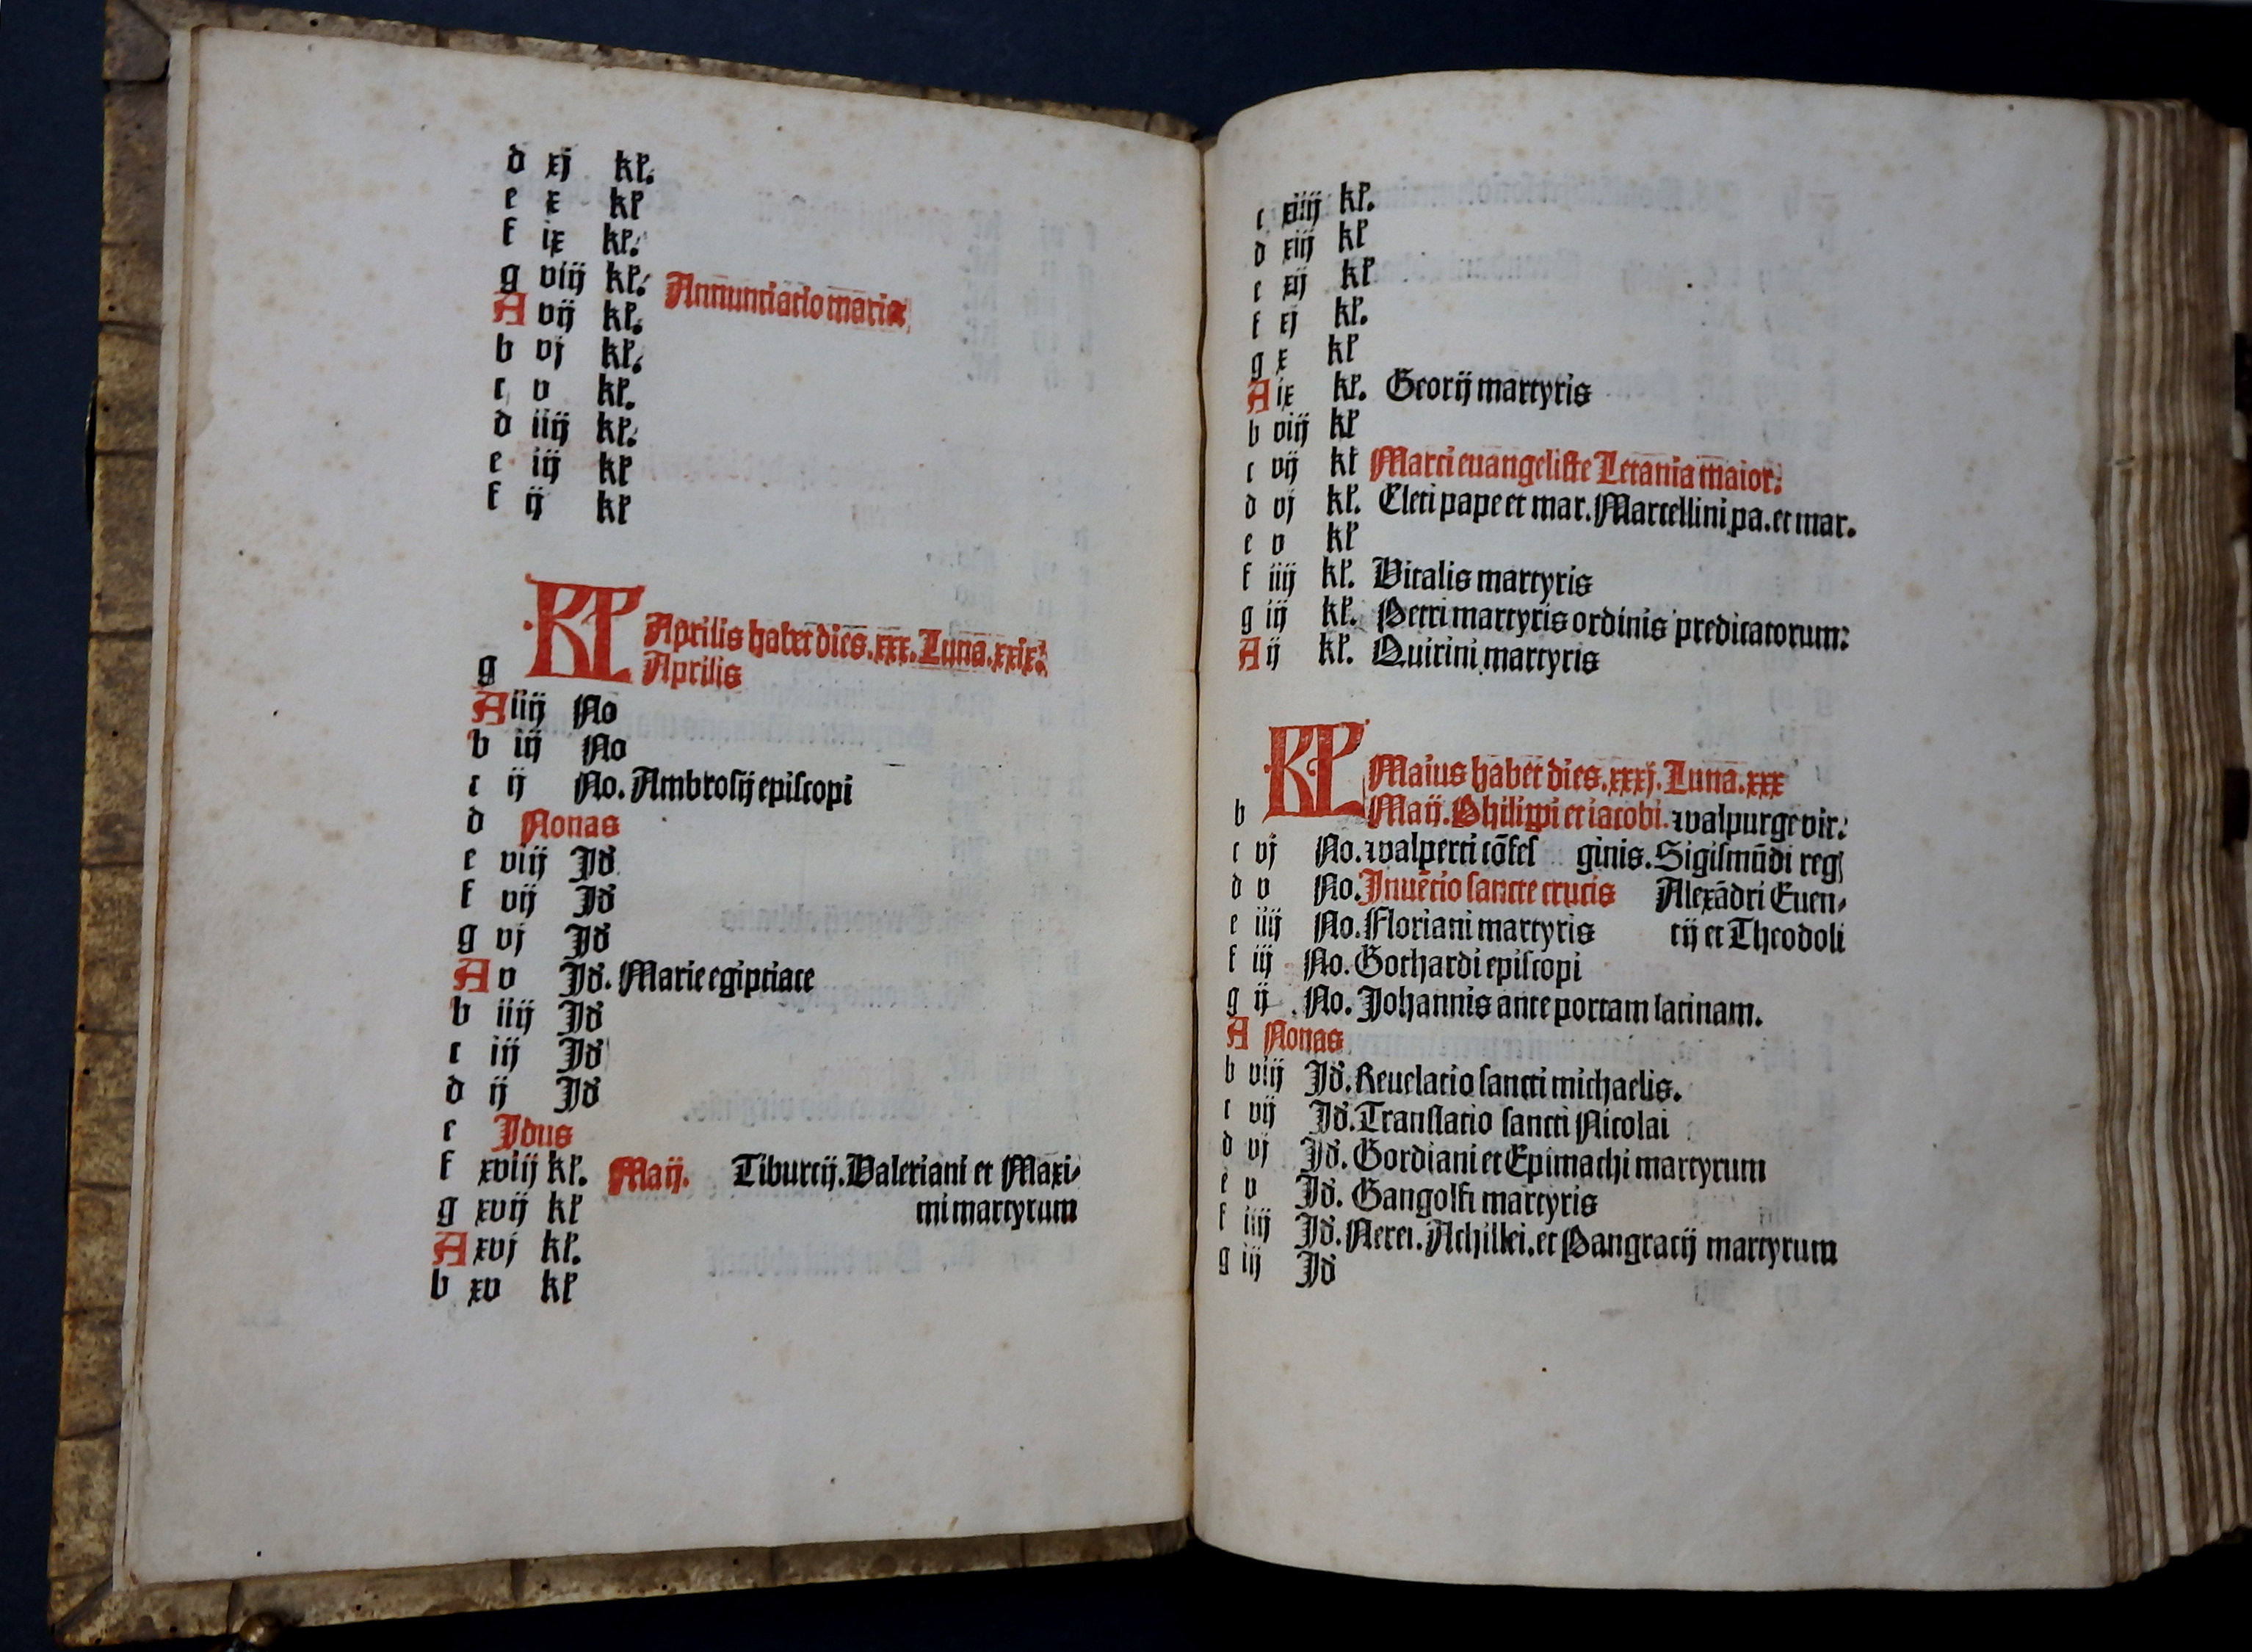 d xj kl.
e x kl
f ix kl.
g viij kl.
A vij kl. Annunciatio marie
b vj kl.
c v kl.
d iiij kl.
e iij kl
f ij kl
KL Aprilis habet dies.xxx.Luna.xxix.
g Aprilis
A iiij No
b iij No
c ij No. Ambrosij episcopi
d Nonas
e viij Id
f vij Id
g vj Id
A v Id. Marie egiptiace
b iiij Id
c iij Id
d ij Id
e Idus
f xviij kl. Maij. Tiburcij.Valeriani et Maxi-
g xvij kl mi martyrum
A xvj kl.
b xv kl
c xiiij kl.
d xiij kl
e xij kl
f xj kl.
g x kl
A ix kl. Georij martyris
b viij kl
c vij kl Marci euangeliste Letania maior:
d vj kl. Cleti pape et mar. Marcellini pa. et mar.
e v kl
f iiij kl. Vitalis martyris
g iij kl. Petri martyris ordinis predicatorum:
A ij kl. Quirini martyris
KL Maius habet dies.xxxj.Luna.xxx
b Maij. Philippi et iacobi. walpurge vir:
c vj No. walperti cōfes ginis. Sigismūdi reg
d v No. Inuētio sancte crucis Alexādri Euen-
e iiij No. Floriani martyris tij et Theodoli
f iij No. Gothardi episcopi
g ij No. Johannis ante portam latinam.
A Nonas
b viij Id. Reuelatio sancti michaelis.
c vij Id. Translatio sancti Nicolai
d vj Id. Gordiani et Epimachi martyrum
e v Id. Gangolfi martyris
f iiij Id. Nerei. Achillei. et Pangracij martyrum
g iij Id